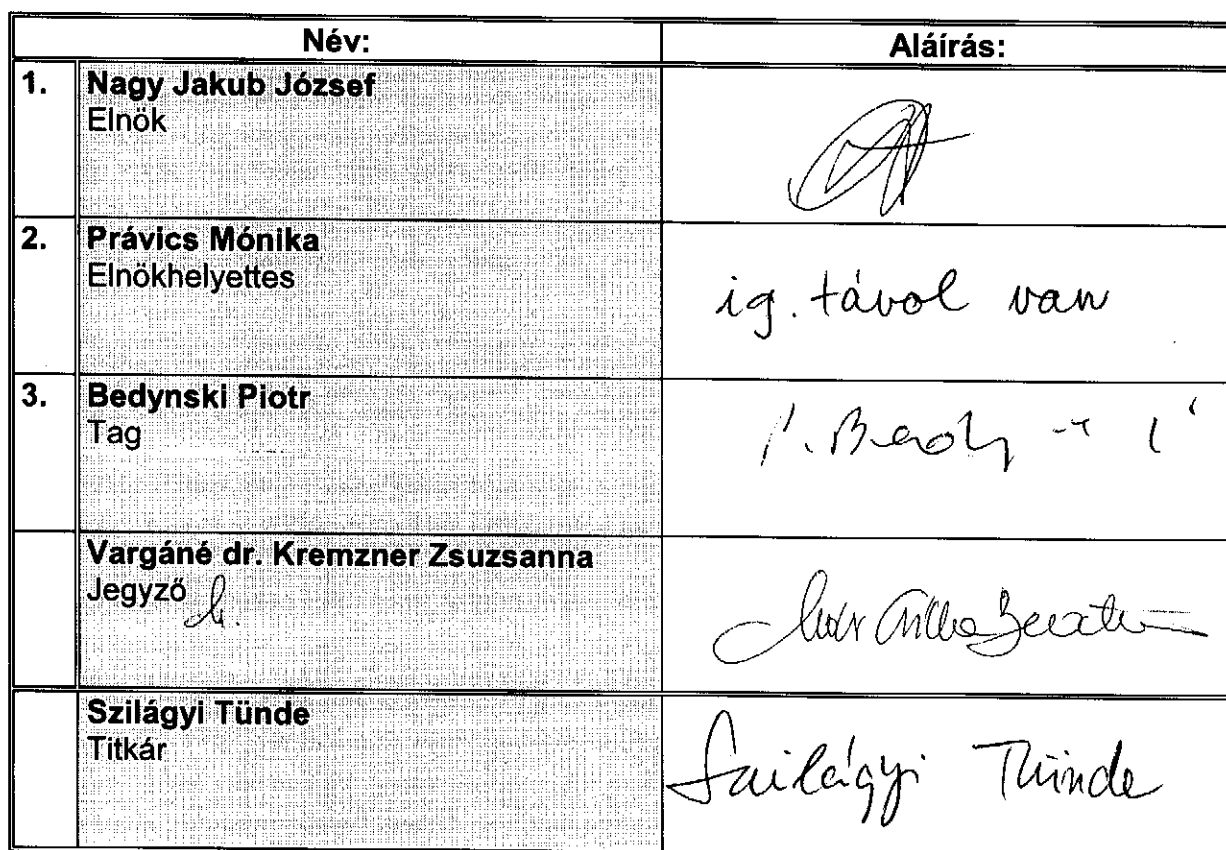 Név: Aláírás:
1. Nagy Jakub József
Elnök
2. Právics Mónika
Elnökhelyettes
ig. távol van
3. Bedynski Piotr
Tag
Vargáné dr. Kremzner Zsuzsanna
Jegyző
Szilágyi Tünde
Titkár
Szilágyi Tünde